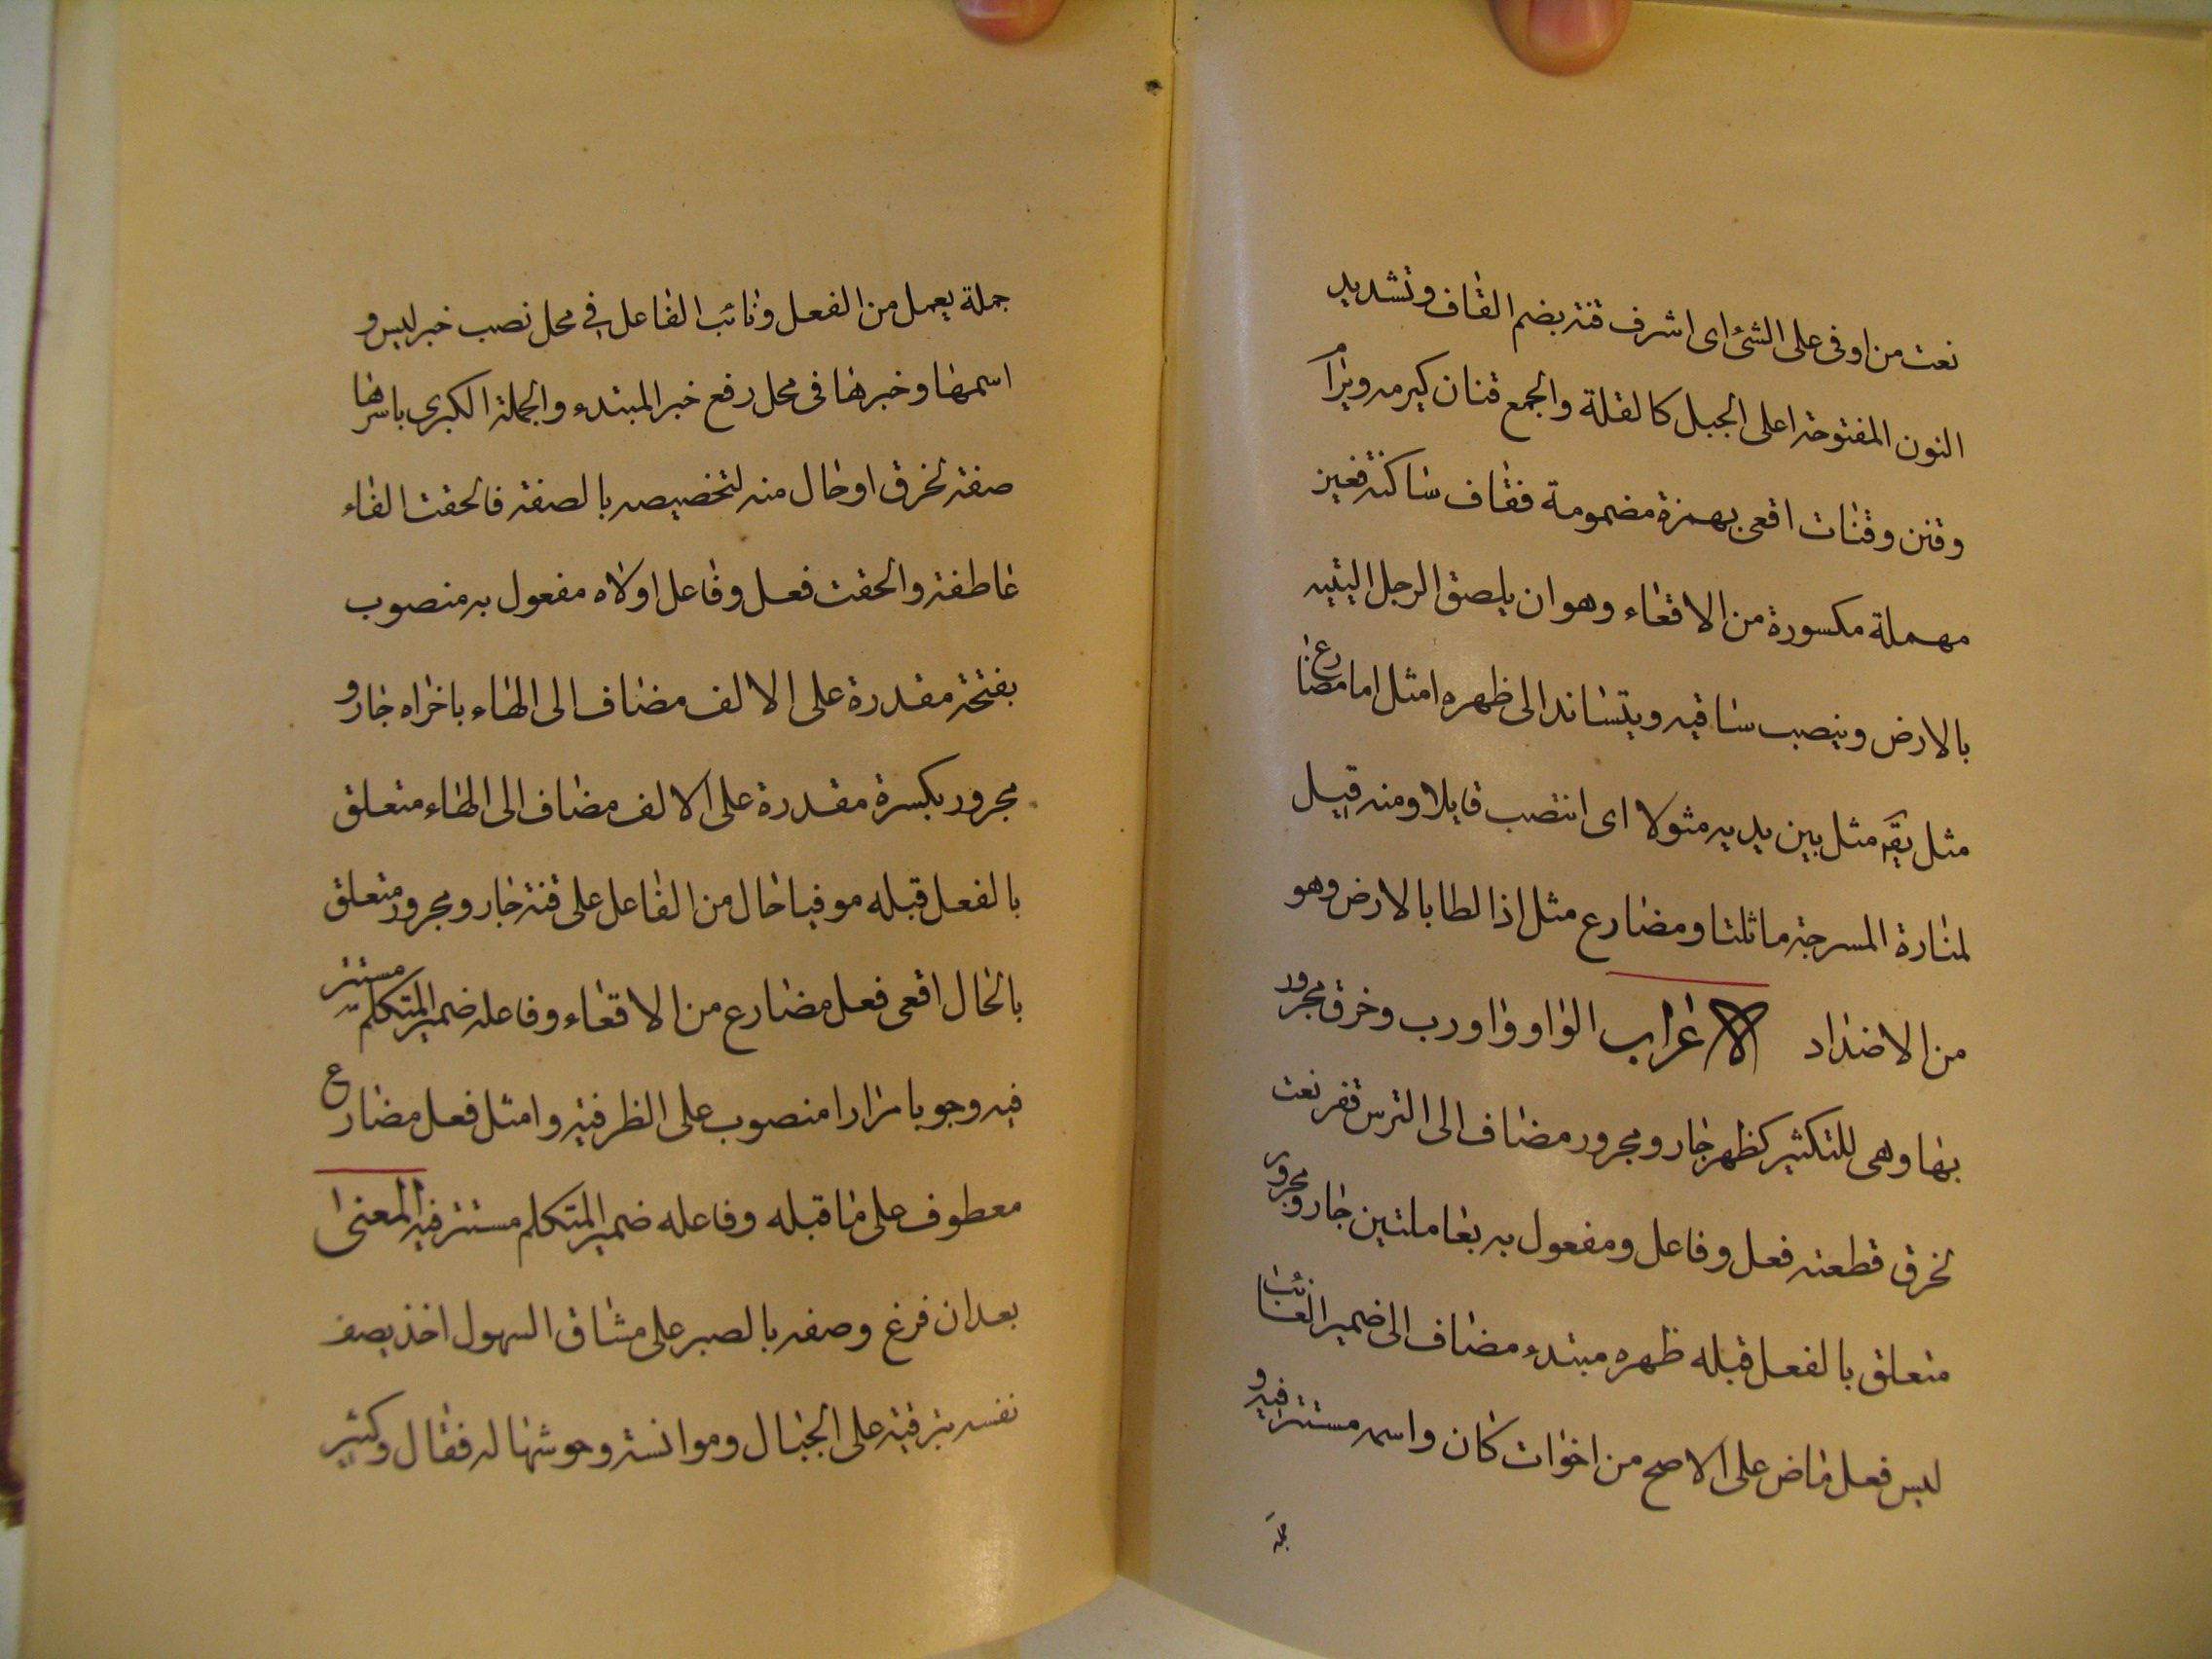 نعت من اوفى على الشئ اى اشرف قنة بضم القاف وتشديد
النون المفتوحة اعلى الجبل كالقلة والجمع قنان كبرمه وبرام
وقنن وقنات اقعى بهمزة مضمومة فقاف ساكنة فعين
مهملة مكسورة من الاقعاء وهو ان يلصق الرجل اليتيه
بالارض وينصب ساقيه ويتساند الى ظهره امثل اما مضارع
مثل يقه مثل بين يديه مثولا اى انتصب قايلا ومنه قيل
لمنارة المسرجة ماثلتا ومضارع مثل اذا لطا بالارض وهو
من الاضداد الاعراب الواو واو رب وخرق مجرور
بها وهى للتكثير كظهر جار ومجرور مضاف الى الترس قفر نعت
لخرق قطعته فعل وفاعل ومفعول به بعاملتين جار ومجرور
متعلق بالفعل قبله ظهره مبتدء مضاف الى ضمير الغائب
ليس فعل ماض على الاصح من اخوات كان واسمه مستتر فيه و
جملة
جملة يعمل من الفعل ونائب الفاعل في محل نصب خبر ليس و
اسمها وخبرها فى محل رفع خبر المبتدء والجملة الكبرى باسرها
صفة لخرق او حال منه لتخصيصه بالصفة فالحقت الفاء
عاطفة والحقت فعل وفاعل اولاه مفعول به منصوب
بفتحة مقدرة على الالف مضاف الى الهاء باخراه جار و
مجرور بكسرة مقدرة على الالف مضاف الى الهاء متعلق
بالفعل قبله موفيا حال من الفاعل على قنة جار ومجرور متعلق
بالحال اقعى فعل مضارع من الاقعاء وفاعله ضمير المتكلم مستتر
فيه وجوبا مرارا منصوب على الظرفية وامثل فعل مضارع
معطوف على ما قبله وفاعله ضمير المتكلم مستتر فيه المعنى
بعد ان فرغ وصفه بالصبر على مشاق السهول اخذ يصف
نفسه بترقيه على الجبال وموانسة وحوشها له فقال وكثير